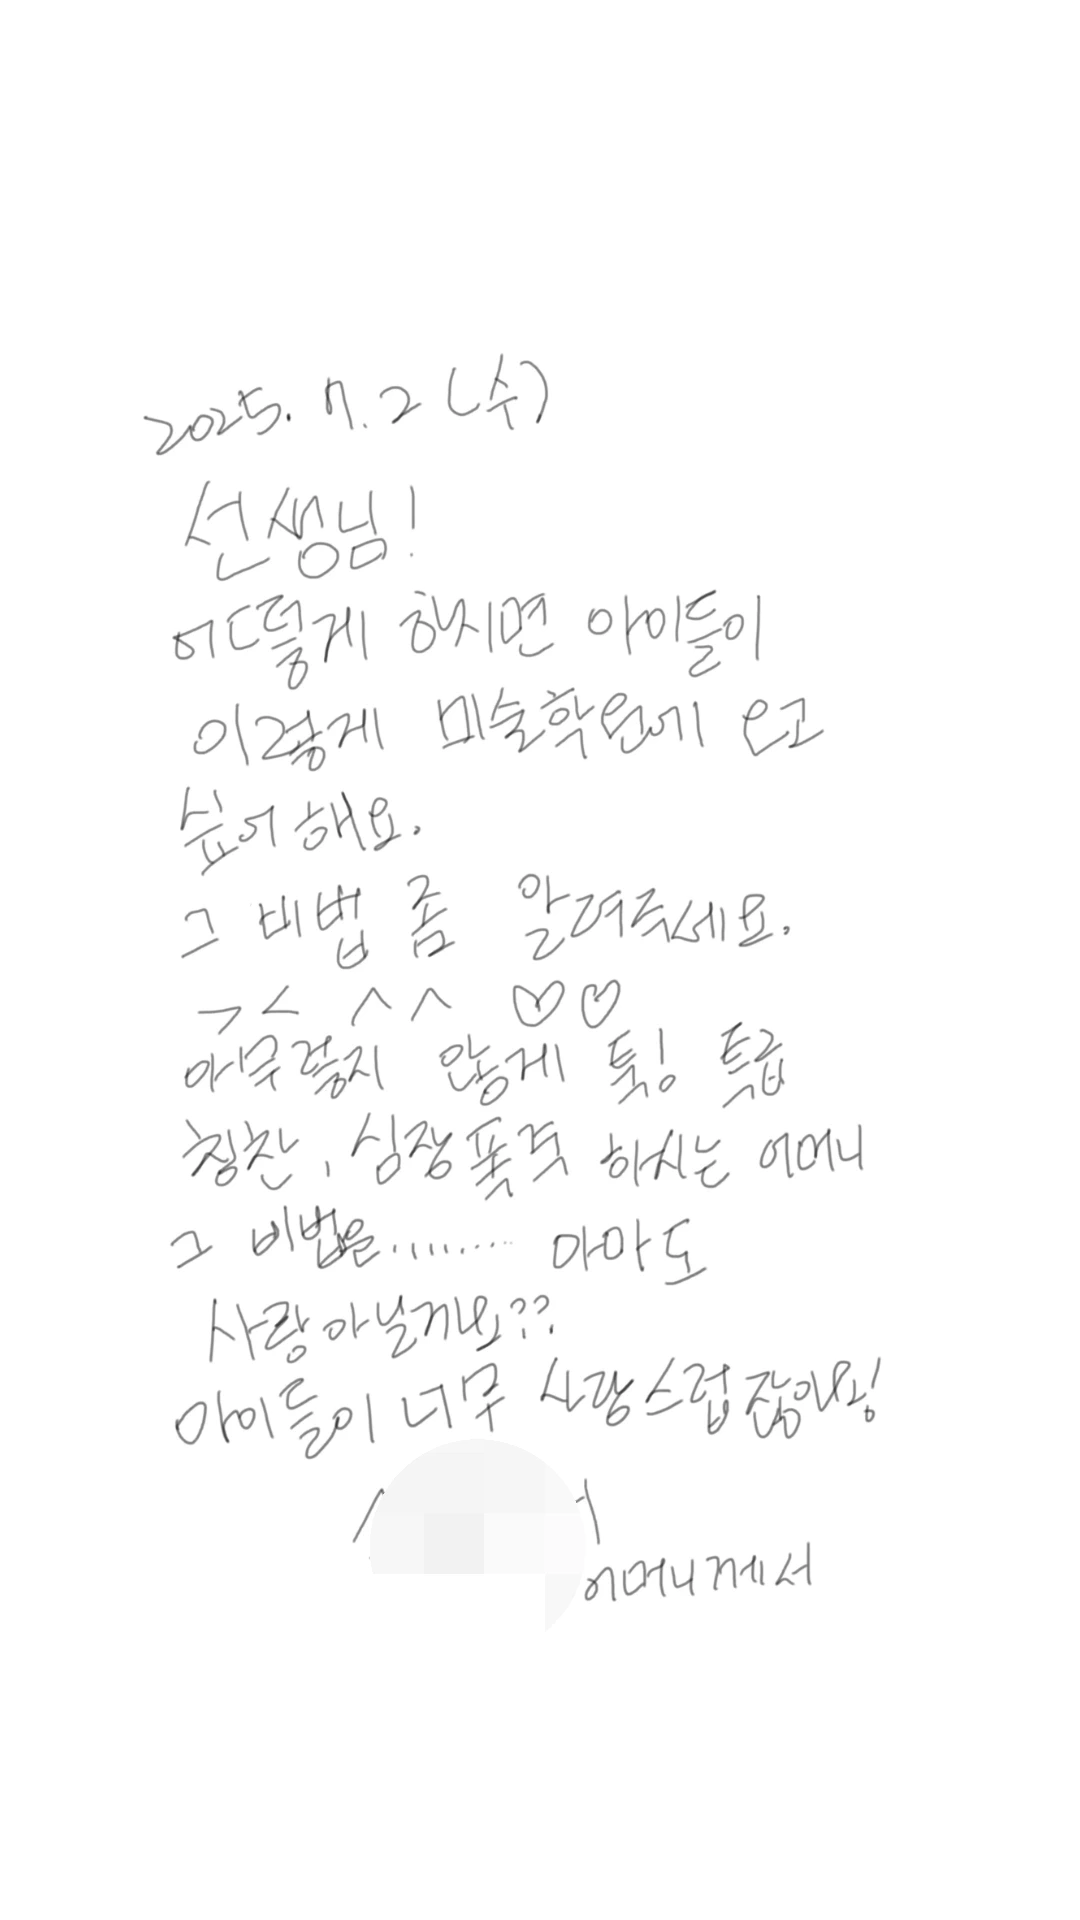 2025. 7. 2 (수)
선생님!
어떻게 하시면 아이들이
이렇게 미술학원에 오고
싶어해요.
그 비법 좀 알려주세요.
> < ^ ^ ♡♡
아무렇지 않게 툭! 특급
칭찬, 심장폭격 하시는 어머니
그 비법은......... 아마도
사랑아닐거요??
아이들이 너무 사랑스럽잖아요!
어머니께서